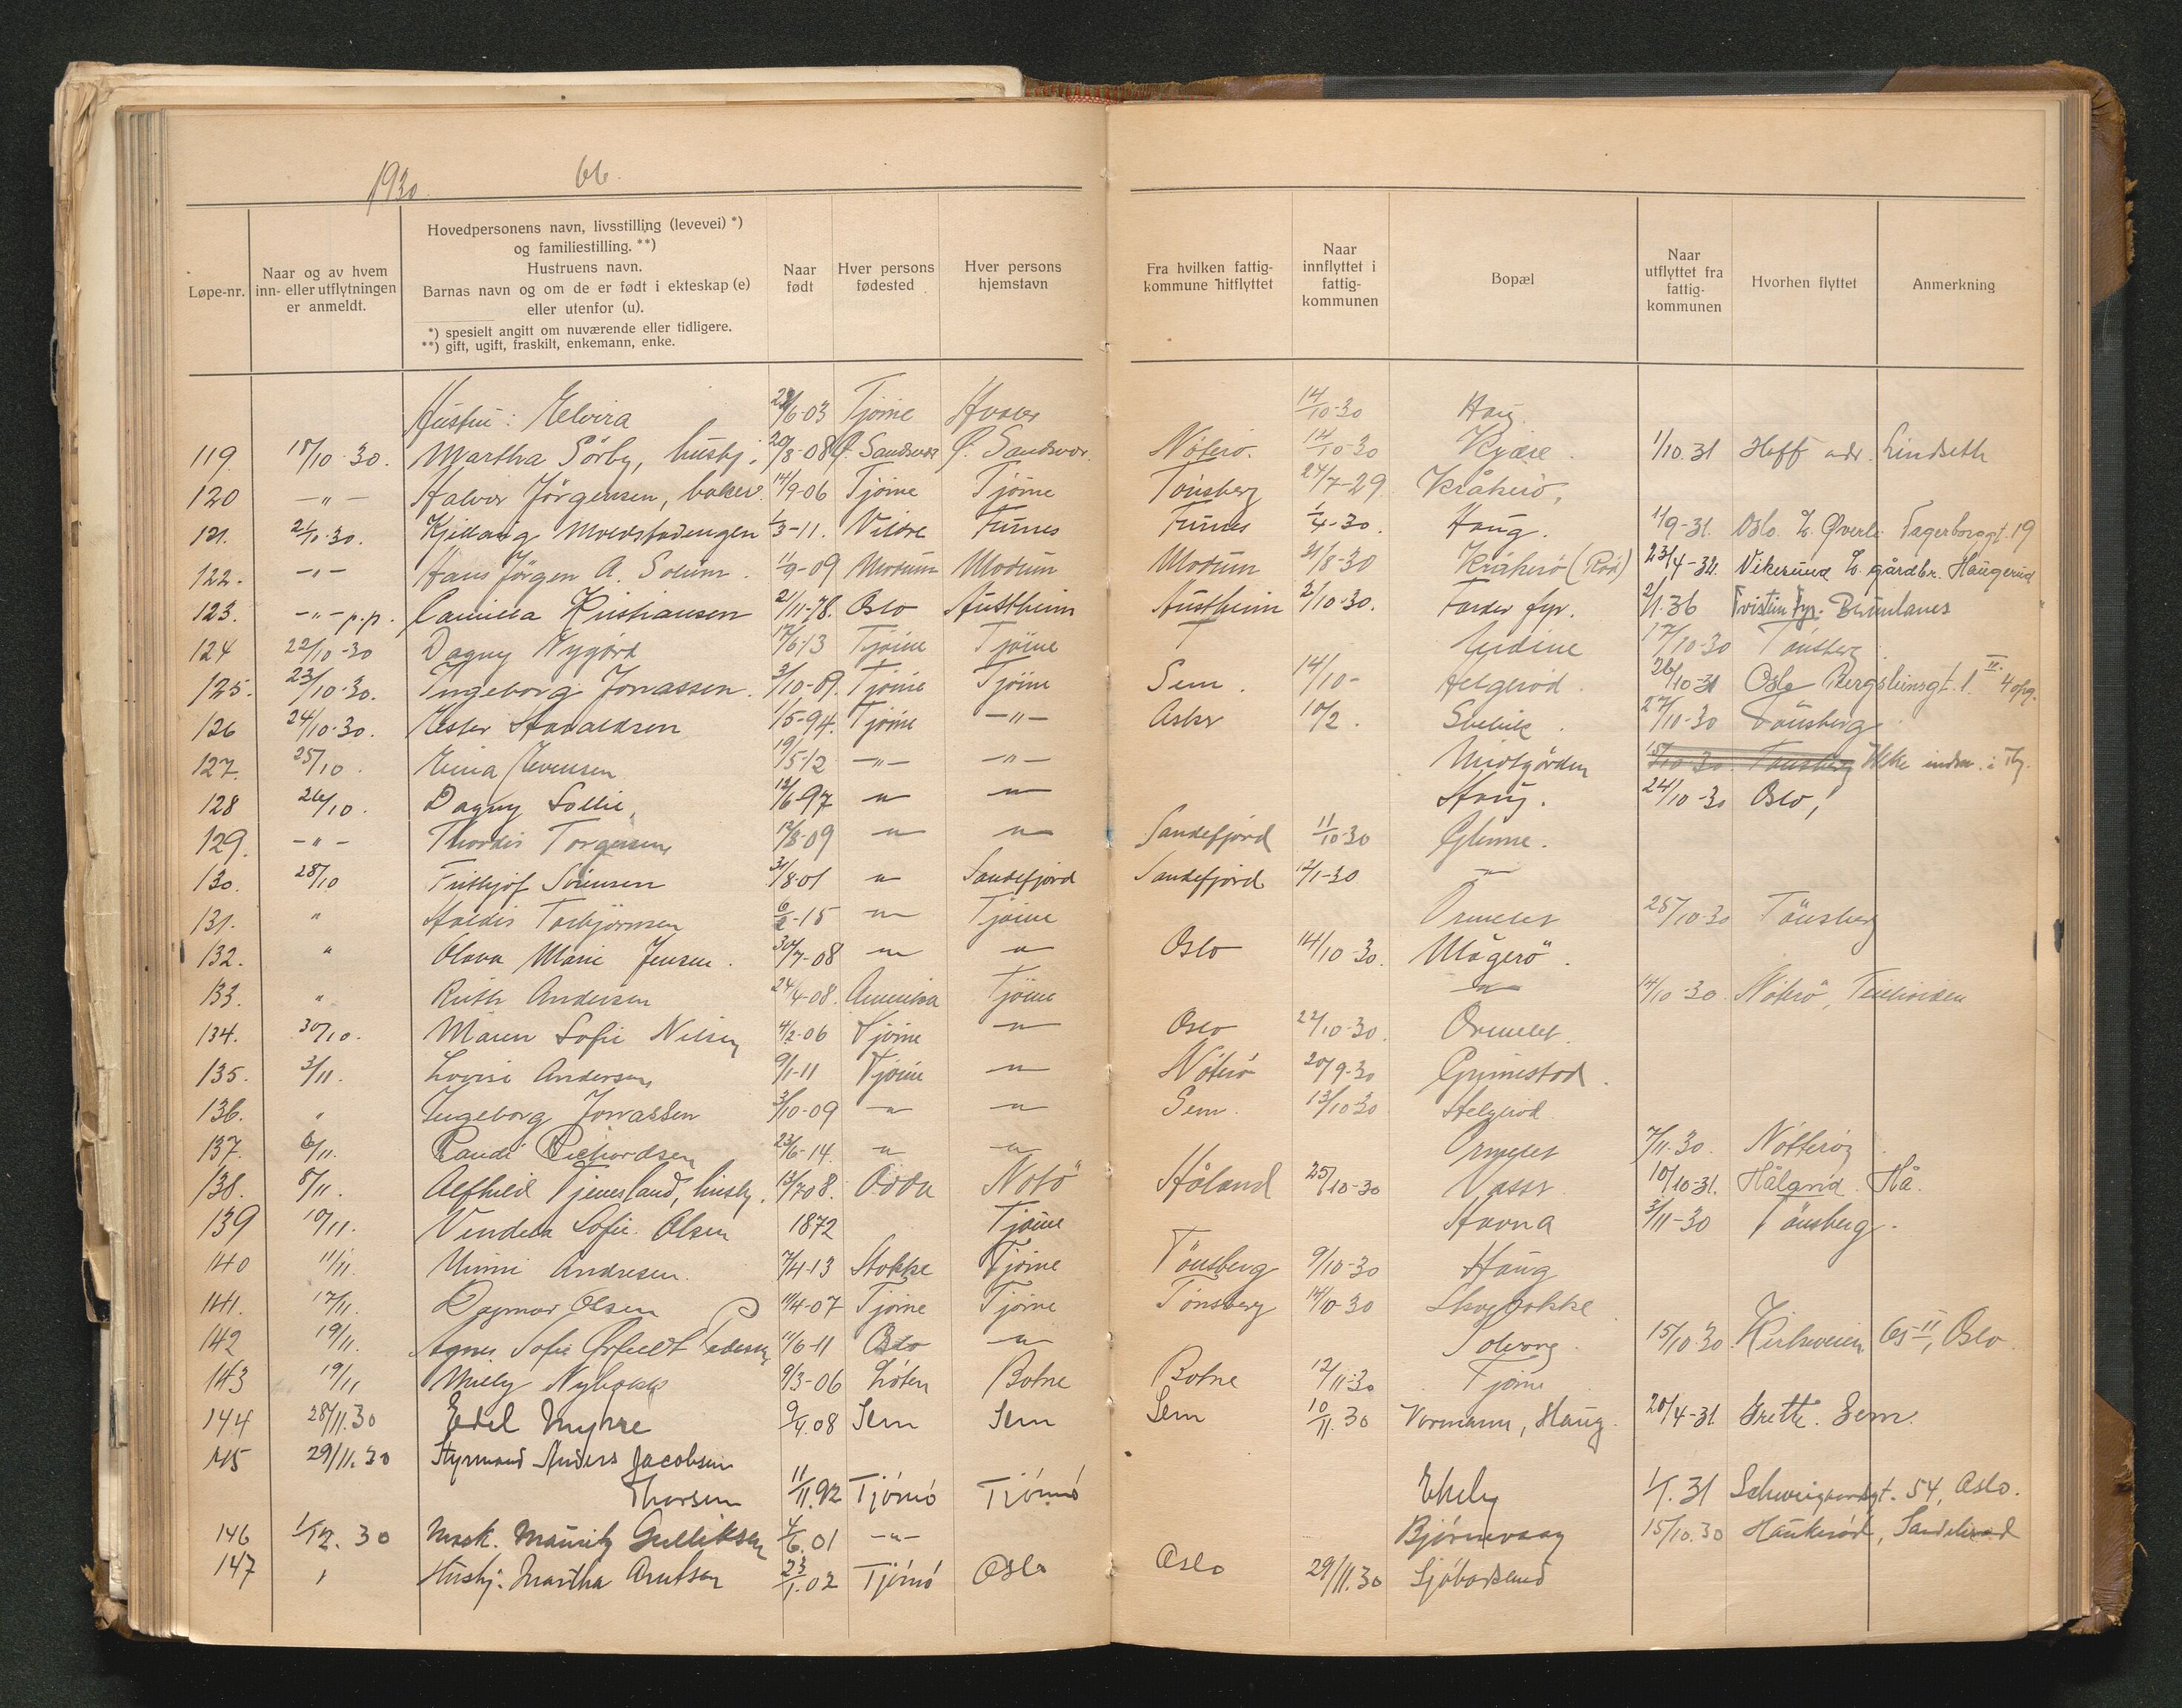 1930. 66.
Løpe-nr. | Naar og av hvem inn- eller utflytningen er anmeldt. | Hovedpersonens navn, livsstilling (levevei) *) og familiestilling. **) Hustruens navn. Barnas navn og om de er født i ekteskap (e) eller utenfor (u). *) spesielt angitt om nuværende eller tidligere. **) gift, ugift, fraskilt, enkemann, enke. | Naar født | Hver persons fødested | Hver persons hjemstavn | Fra hvilken fattigkommune hitflyttet | Naar innflyttet i fattigkommunen | Bopæl | Naar utflyttet fra fattigkommunen | Hvorhen flyttet | Anmerkning
Hustru: Elvira Tjøme 14/10-30 Haug
119. 18/10-30. Martha Sörby, hushj. 20/8-08 Ø. Sandsvær Ø. Sandsvær. Nöterö. 14/10-30 Kjære. 1/10.31 Hoff adr. Lindseth
120 -"- Halvor Jörgensen, baker. 14/9-06 Tjöme Tjöme Tönsberg 24/7-29 Kråkerö.
121. 21/10.30. Kjellaug 1/3-11. Furnes Furnes 1/4-30. Haug. 1/9-31. Oslo. Fagerborggt. 19
122. -"- Hans Jörgen A. Solum. 1/9-09 Modum Modum Modum 21/8-30 Kråkerö (Rød) 23/4-32. Vikersund gårdbr. Haugerud
123. -"- p.p. Camilla Kristiansen 21/11-78. Oslo Austheim Austheim 2/10-30. Færder fyr. 2/1.36
124 22/10-30 Dagny Nygård 17/6-13 Tjöme Tjöme 17/10-30 Tönsberg
125. 23/10-30. Ingeborg Jonassen. 3/10-09. Tjöme Tjöme Sem. 14/10- Helgeröd. 26/10-31 Oslo
126 24/10-30. Ester 11/5-94. Tjöme -"- Asker 10/2. 27/11-30 Tönsberg
127. 25/10. 19/5-12 -"- -"- Midtgården 15/10-30. Tönsberg Ikke
128 26/10. Dagny Sollie. 12/6-97 " " Haug. 24/10-30 Oslo,
129. -"- Thordis Torgersen 12/8-09 " " Sandefjord 11/10-30 Glenne.
130. 28/10 Frithjof Sörensen 31/8-01 " Sandefjord Sandefjord 12/1-30 "
131. " Haldis Torbjörnsen 6/2-15 " Tjöme Ormelet 25/10-30 Tönsberg
132. " Olava Marie Jensen. 30/7-08 " " Oslo 14/10-30. Mågerö.
133. " Ruth Andersen 24/4-08. Amerika Tjöme " 14/10-30. Nöterö,
134. 30/10. Maren Sofie Nilsen 4/2-06 Tjöme " Oslo 22/10-30. Ormelet.
135. 3/11. Lovise Andersen 9/1-11 Tjöme " Nöterö 20/9-30 Grimestad.
136. " Ingeborg Jonassen 3/10-09 " " Sem. 13/10-30 Helgeröd
137. 6/11. Randi Richardsen 23/6-14. " " Ormelet 7/11.30. Nötteröy
138. 8/11. Alfhild hushj. 13/7-08. Odda Håland 25/10-30 10/10-31. Håland. Hå.
139 10/11. Sofie Olsen 1872 Tjöme Havna 3/11-30 Tönsberg.
140 11/11. Minni Andresen. 7/4-13 Stokke Tjöme Tönsberg 9/10-30 Haug
141. 17/11. Dagmar Olsen 11/4-07 Tjöme Tjöme Tönsberg 14/10-30 Skogbakke
142 19/11. Agnes Sofie Pedersen 11/6-11 Oslo " Solvang. 15/10.30. Kirkeveien 65 II, Oslo.
143 19/11 Milly Nybakk 9/3-06 Löten Botne Botne 12/11-30 Tjöme
144 28/11.30 Edel Myhre 9/4.08 Sem Sem Sem 10/11.30 Vormann, Haug. 20/4-31. Grette. Sem.
145 29/11.30 Styrmand Anders Jacobsen
Thorsen 11/11.92 Tjömö Tjömö Ekely 1/1.31 Schweigaardsgt. 54, Oslo.
146 1/12.30 Mask. Mauritz Gulliksen 4/6.01 -"- Bjørnevaag 15/10.30 Haukeröd, Sandeherad
147 " Hushj. Martha Arntsen 23/1.02 Tjömö Oslo Oslo 29/11.30